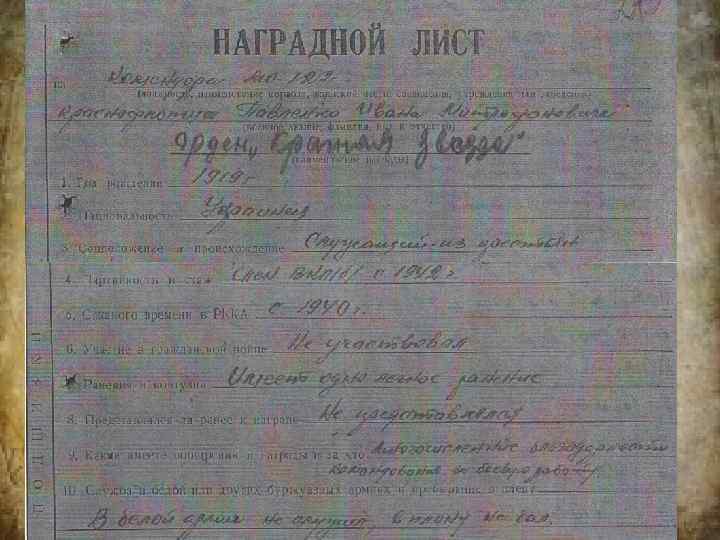 НАГРАДНОЙ ЛИСТ
на
(должность, наименование корабля, войсковой части соединения, учреждения или заведения)
Краснофлотца Павленко Ивана Митрофановича
(воинское звание, фамилия, имя и отчество)
Орден „Красная Звезда"
(наименование награды)
1. Год рождения 1919 г
2. Национальность Украинец
3. Соцположение и происхождение Служащий-из крестьян
4. Партийность и стаж Член ВКП(б) с 1942 г
5. С какого времени в РККА с 1940 г.
6. Участие в гражданской войне Не участвовал
7. Ранения и контузии Имеет одно легкое ранение
8. Представлялся ли ранее к награде Не представлялся
9. Какие имеете поощрения и награды и за что Многочисленные благодарности
командования за боевую работу
10. Служба в белой или других буржуазных армиях и пребывание в плену
В белой армии не служил, в плену не был.
ПОДШИВКИ